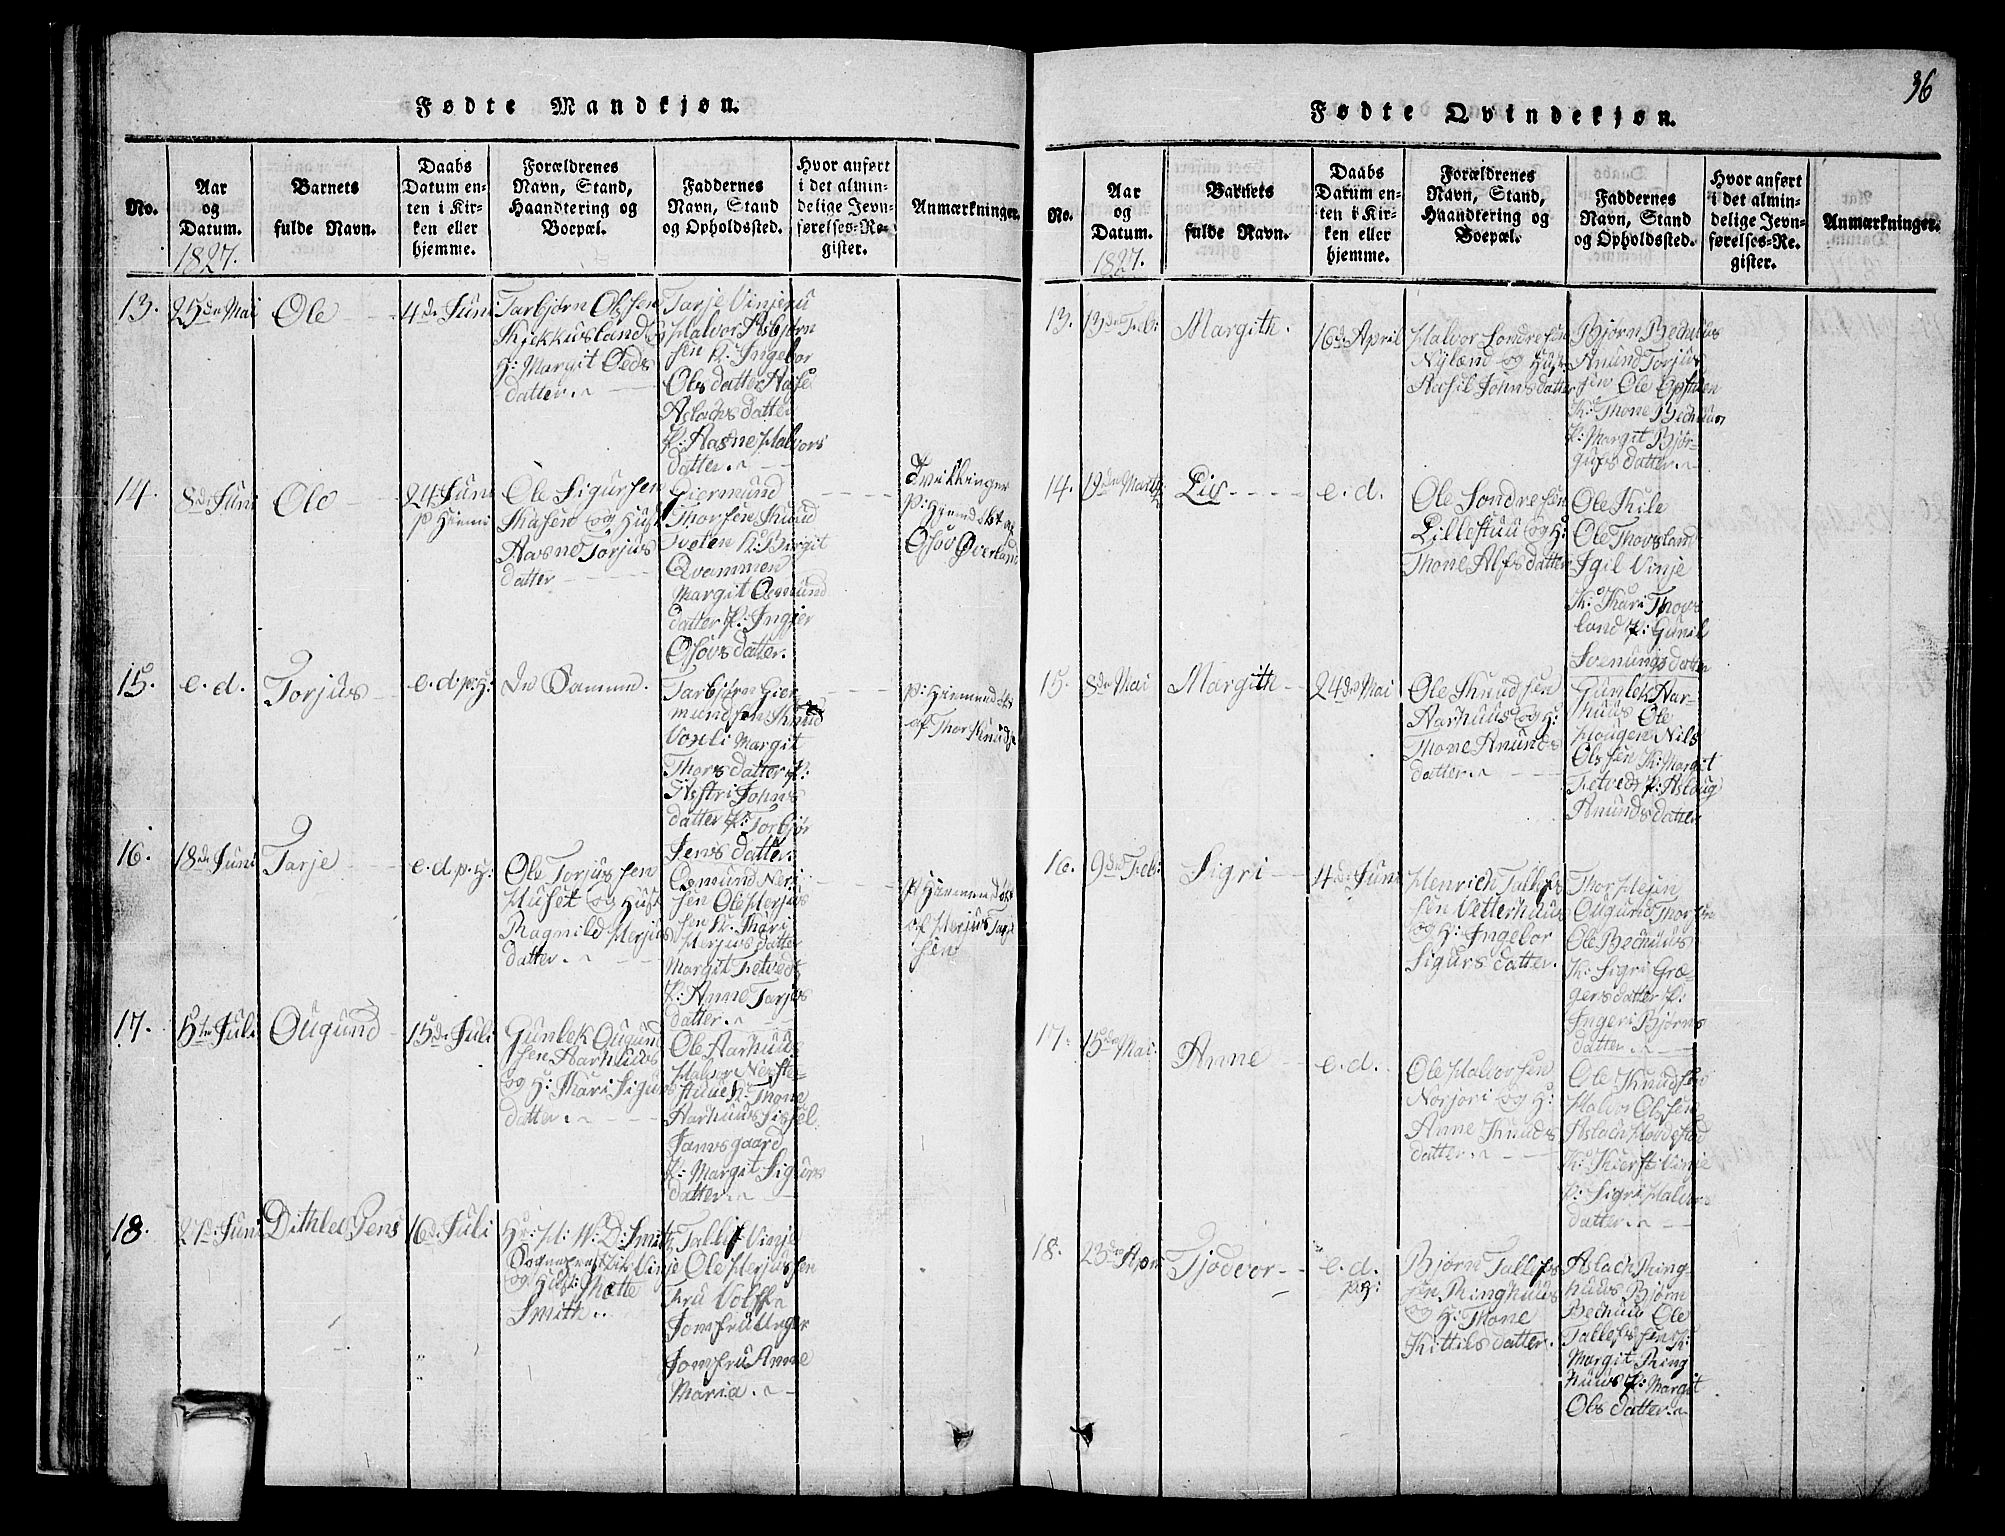 36
Fødte Mandkjøn.
No.
Aar
og
Datum.
1827.
Barnets
fulde Navn.
Daabs
Datum en-
ten i Kir-
ken eller
hjemme.
Forældrenes
Navn, Stand,
Haandtering og
Boepæl.
Faddernes
Navn, Stand
og Opholdssted.
Hvor anført
i det almin-
delige Jevn-
førelses-Re-
gister.
Anmærkninger.
13.
25de Mai
Ole
4de Juni
Tarbjørn Olssen
Kjekkusland og
H: Margit Øeds
datter.
Tarje Vinjeru
Halvor Asbjørn
sen K: Ingebor
Ols datter Aase
Aslachs datter
P: Aasne Halvors
datter.
14.
8de Juni
Ole
24 Juni
p Hiemi
Ole Sigursen
Skasen og Hust
Aasne Torjus
datter
Giermund
Thorsen Knud
Tveten K: Birgit
Qvammen
Margit Osmund
datter P: Ingjer
Osovs datter.
Tvillinger
p: Hiemdøbt af
Osov Øverland
15.
e. d.
Torjus
e. d. p. H:
De Samme.
Tarbjørn Gier
mundsen Knud
Vonli Margit
Thors datter P:
Astri Johns
datter P: Torbjør
Jens datter.
p: Hiemmedøbt
af Thor Knuds
16.
18de Juni
Tarje
e. d. p. H:
Ole Torjussen
Huset og Hust
Ragnild Herjus
datter.
Osmund Neri
sen Ole Herjus
sen K: Kari
Herjus datter
Margit Tetvedt
P: Anne Tarjus
datter.
p Hiemmedøbt
af Herjus Tarje
sen
17.
5te Juli
Ougund
15de Juli
Gunlek Ougund
sen Aarhuus
og H: Kari Sigurs
datter.
Ole Aarhuus
Halvor Nerste-
stuue K: Thone
Aarhuus Sissel
Jamsgaard
P: Margit Sigurs
datter.
18.
21de Juni
Dithlev Jens
16de Juli
Hr: H: W: D: Smith
Sognepræst til Vinje
og Hust: Mette
Smith.
Tallef Vinje
Ole Herjussen
Fru Volff
Jomfru Unger
Jomfru Anne
Maria.
Fødte Qvindekjøn.
No.
Aar
og
Datum.
1827.
Barnets
fulde Navn.
Daabs
Datum en-
ten i Kir-
ken eller
hjemme.
Forældrenes
Navn, Stand,
Haandtering og
Boepæl.
Faddernes
Navn, Stand
og Opholdssted.
Hvor anført
i det almin-
delige Jevn-
førelses-Re-
gister.
Anmærkninger.
13.
13de Feb:
Margith.
16de April
Halvor Sondresen
Nyland og Hust
Aasil Johns datter
Bjørn Bechuus
Anund Torjus
sen Ole Opstuen
K: Thone Bechuus
P: Margit Bjør-
gufs datter.
14.
19de Marts
Liv
e. d.
Ole Sondresen
Lillestuu og H:
Thone Alfs datter
Ole Kile
Ole Thovsland
Egil Vinje
K: Kari Thovs
land P: Gunil
Svenungs datter
15.
8de Mai
Margith
24de Mai
Ole Knudsen
Aarhuus og H:
Thone Anunds
datter.
Gunlek Aar-
huus Ole
Haugen Nils
Olssen K: Margit
Tetvedt P: Aslaug
Anunds datter
16.
9de Feb:
Sigri
4de Juni
Henrich Tallefs
sen Vetterhuus
og H: Ingebor
Sigurs datter.
Thor Hejen
Ougund Thorsen
Ole Bechuus
K: Sigri Græ-
gers datter P:
Ingeri Bjørns
datter.
17.
15de Mai.
Anne
e. d.
Ole Halvorsen
Norjori og H:
Anne Knuds
datter.
Ole Knudsen
Halvor Olssen
Aslach Hovdestad
K: Kiersti Vinje
P: Sigri Halvors
datter.
18.
23de Apri
Tjodvor
e. d.
p H:
Bjørn Tallefs
sen Ringhuus
og H: Thone
Kittils datter.
Aslach Ring-
huus Bjørn
Bechuus Ole
Tallefssen K:
Margit Ring
huus P: Margit
Ols datter.